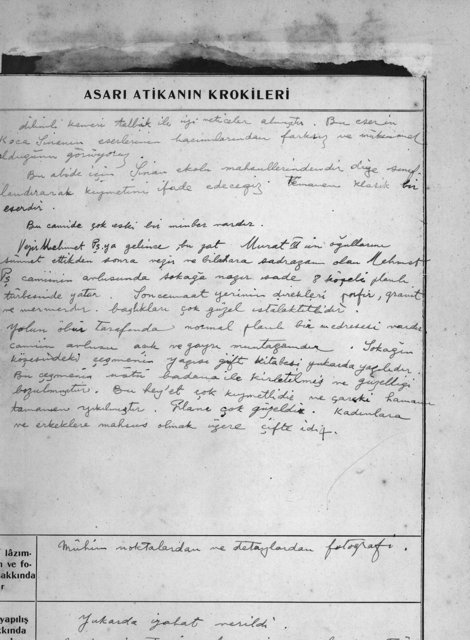 ASARI ATİKANIN KROKİLERİ
dilimli kemeri tatbik ile iyi neticeler almıştır. Bu eserin
Koca Sinanın eserlerinin hacimlarından farksız ve mükemmel
olduğunu görüyoruz
Bu abide için Sinan ekolu mahsullerindendir diye sınıf
landırarak kıymetini ifade edeceğiz. Tamamen klasik bir
eserdir.
Bu camide çok eski bir minber vardır.
Vezir Mehmet Pş.ya gelince bu zat Murat III ün oğullarını
sünnet ettikden sonra vezir ve bilahara sadrazam olan Mehmet
Pş camiinin avlusunda sokağa nazır sade 8 köşeli planlı
türbesinde yatar. Soncemaat yerinin direkleri porfir, granit
ve mermerdir. başlıkları çok güzel istalaktitlidir.
Yolun obür tarafında normal planlı bir medresesi vardır
camiin avlusu açık ve gayrı muntazamdır. Sokağın
köşesindeki çeşmenin yazısı çift kitabesi yukarda yazılıdır.
Bu çeşmenin üstü badana ile kirletilmiş ve güzelliği
bozulmuştur. Bu hey'et çok kıymetlidir ve çarşki hamamı
tamamen yıkılmıştır. Planı çok güzeldir. Kadınlara
ve erkeklere mahsus olmak üzere çifte idi.
lâzım-
n ve fo-
hakkında
r
Mühim noktalardan ve detaylardan fotoğrafı.
yapılış
kkında
Yukarda izahat verildi.